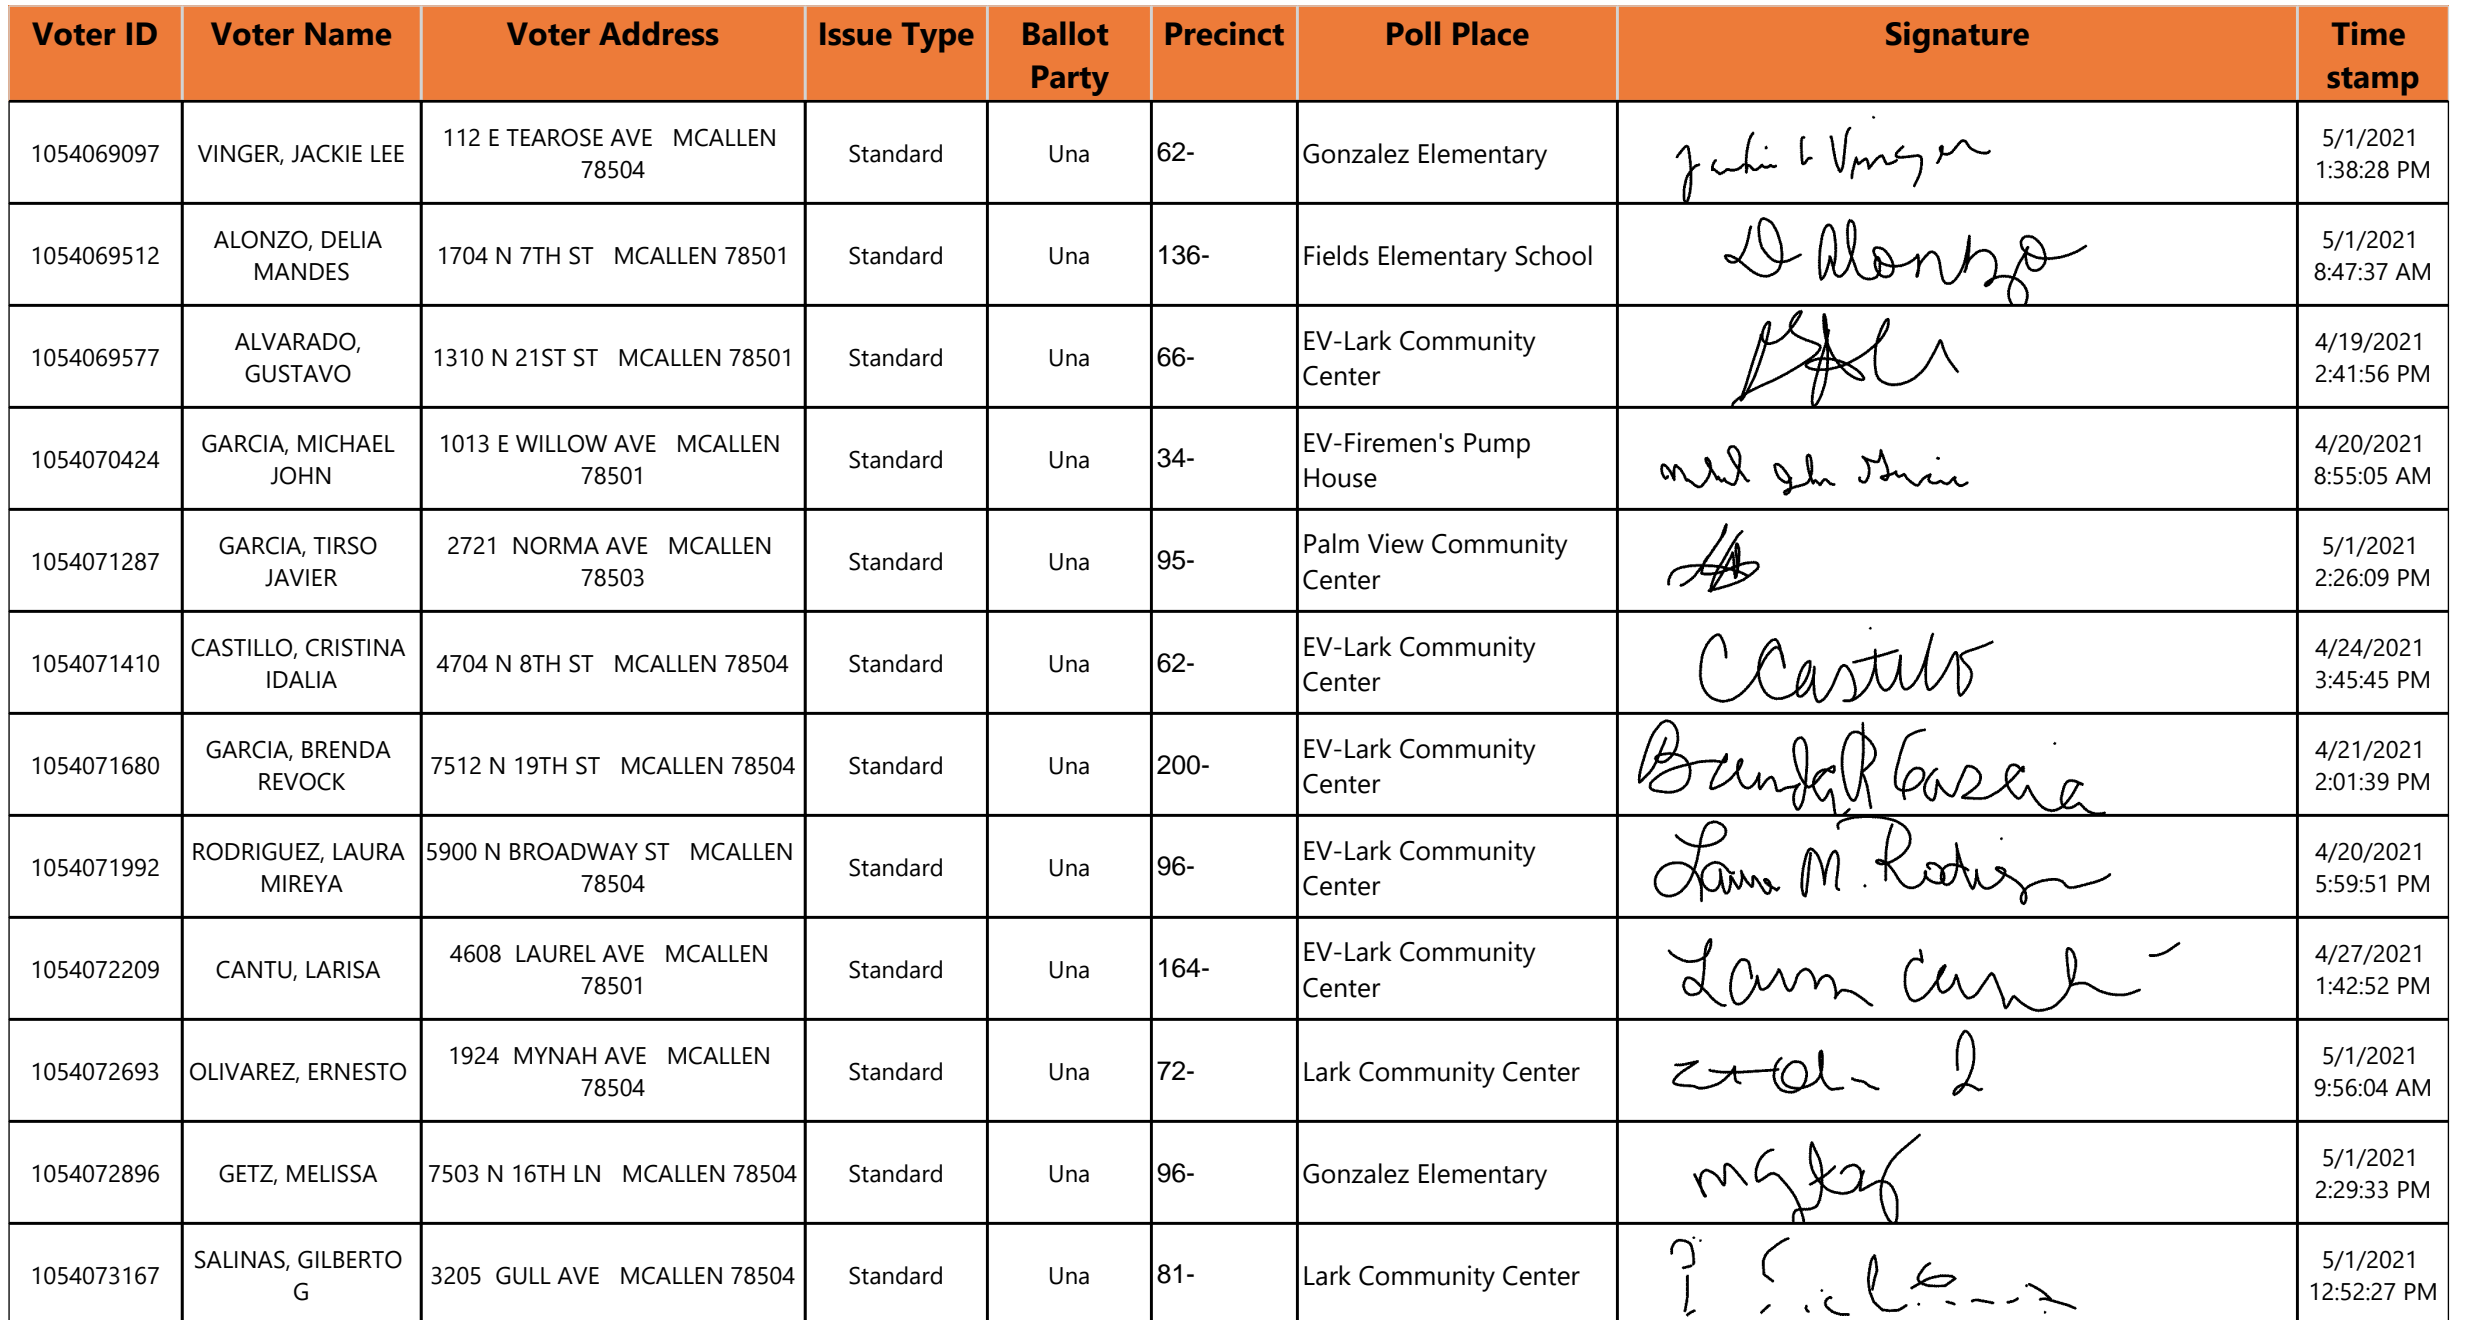 Voter ID Voter Name Voter Address Issue Type Ballot Party Precinct Poll Place Signature Time stamp
1054069097 VINGER, JACKIE LEE 112 E TEAROSE AVE MCALLEN 78504 Standard Una 62- Gonzalez Elementary Jackie L Vinger 5/1/2021 1:38:28 PM
1054069512 ALONZO, DELIA MANDES 1704 N 7TH ST MCALLEN 78501 Standard Una 136- Fields Elementary School D Alonzo 5/1/2021 8:47:37 AM
1054069577 ALVARADO, GUSTAVO 1310 N 21ST ST MCALLEN 78501 Standard Una 66- EV-Lark Community Center 4/19/2021 2:41:56 PM
1054070424 GARCIA, MICHAEL JOHN 1013 E WILLOW AVE MCALLEN 78501 Standard Una 34- EV-Firemen's Pump House 4/20/2021 8:55:05 AM
1054071287 GARCIA, TIRSO JAVIER 2721 NORMA AVE MCALLEN 78503 Standard Una 95- Palm View Community Center 5/1/2021 2:26:09 PM
1054071410 CASTILLO, CRISTINA IDALIA 4704 N 8TH ST MCALLEN 78504 Standard Una 62- EV-Lark Community Center C Castillo 4/24/2021 3:45:45 PM
1054071680 GARCIA, BRENDA REVOCK 7512 N 19TH ST MCALLEN 78504 Standard Una 200- EV-Lark Community Center Brenda R Garcia 4/21/2021 2:01:39 PM
1054071992 RODRIGUEZ, LAURA MIREYA 5900 N BROADWAY ST MCALLEN 78504 Standard Una 96- EV-Lark Community Center Laura M. Rodriguez 4/20/2021 5:59:51 PM
1054072209 CANTU, LARISA 4608 LAUREL AVE MCALLEN 78501 Standard Una 164- EV-Lark Community Center 4/27/2021 1:42:52 PM
1054072693 OLIVAREZ, ERNESTO 1924 MYNAH AVE MCALLEN 78504 Standard Una 72- Lark Community Center 5/1/2021 9:56:04 AM
1054072896 GETZ, MELISSA 7503 N 16TH LN MCALLEN 78504 Standard Una 96- Gonzalez Elementary 5/1/2021 2:29:33 PM
1054073167 SALINAS, GILBERTO G 3205 GULL AVE MCALLEN 78504 Standard Una 81- Lark Community Center 5/1/2021 12:52:27 PM